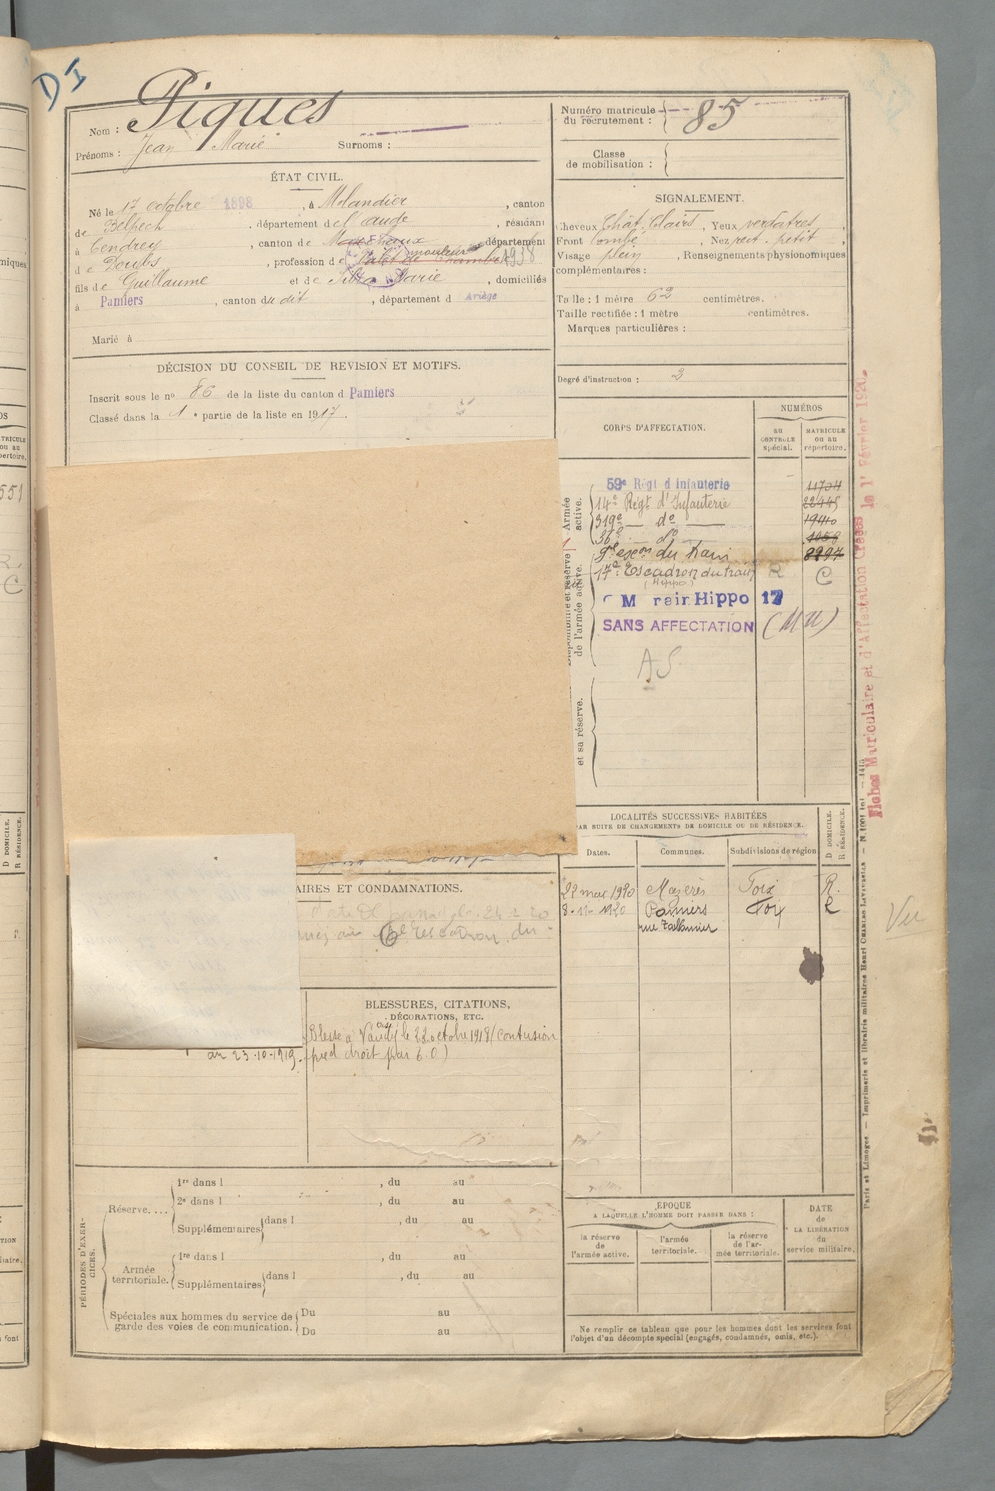 DI
Nom : Piques
Prénoms : Jean Marie Surnoms :
Numéro matricule du recrutement : 85
Classe de mobilisation :
ÉTAT CIVIL.
Né le 17 octobre 1898, à Molandier, canton
de Belpech, département de l'aude, résidant
à Cendrey, canton de Marchaux, département
d de Doubs, profession de mouleur 1938
fils de Guillaume et de Sibra Marie, domiciliés
à Pamiers, canton du dit, département d Ariège
Marié à
SIGNALEMENT.
Cheveux Chât. Clairs, Yeux verdâtres
Front bombé, Nez rect. petit,
Visage plein, Renseignements physionomiques
complémentaires :
Taille : 1 mètre 62 centimètres.
Taille rectifiée : 1 mètre centimètres.
Marques particulières :
Degré d'instruction : 3
DÉCISION DU CONSEIL DE REVISION ET MOTIFS.
Inscrit sous le nº 86 de la liste du canton d Pamiers
Classé dans la 1e partie de la liste en 1917.
CORPS D'AFFECTATION.
NUMÉROS
AU CONTROLE spécial.
MATRICULE ou au répertoire.
Armée active.
59e Régt d Infanterie 11704
14e Régt d'Infanterie 22445
319e do 19410
36e do 1058
9e escon du train 8297
Disponibilité et réserve de l'armée active.
17e Escadron du train R C
(Hippo)
C M Train Hippo 17
SANS AFFECTATION (MU)
AS
et sa réserve.
Fiches Matriculaire et d'Affectation Créées le 1er Février 1920.
LOCALITÉS SUCCESSIVES HABITÉES
PAR SUITE DE CHANGEMENTS DE DOMICILE OU DE RÉSIDENCE.
Dates. Communes. Subdivisions de région
D DOMICILE.
R RÉSIDENCE.
22 mai 1920 Mazères Foix R.
8-11-1920 Pamiers Foix R
rue
Vu
AIRES ET CONDAMNATIONS.
BLESSURES, CITATIONS,
DÉCORATIONS, ETC.
Blessé à Vandy le 28 octobre 1918 (contusion
pied droit par E.O)
au 23-10-1919.
PÉRIODES D'EXERCICES.
Réserve....
1re dans l , du au
2e dans l , du au
Supplémentaires dans l , du au
Armée territoriale.
1re dans l , du au
Supplémentaires dans l , du au
Spéciales aux hommes du service de Du au
garde des voies de communication. Du au
ÉPOQUE
A LAQUELLE L'HOMME DOIT PASSER DANS :
la réserve de l'armée active.
l'armée territoriale.
la réserve de l'armée territoriale.
DATE de LA LIBÉRATION du service militaire.
Ne remplir ce tableau que pour les hommes dont les services font
l'objet d'un décompte spécial (engagés, condamnés, omis, etc.).
Paris et Limoges — Imprimerie et librairie militaires Henri CHARLES-LAVAUZELLE